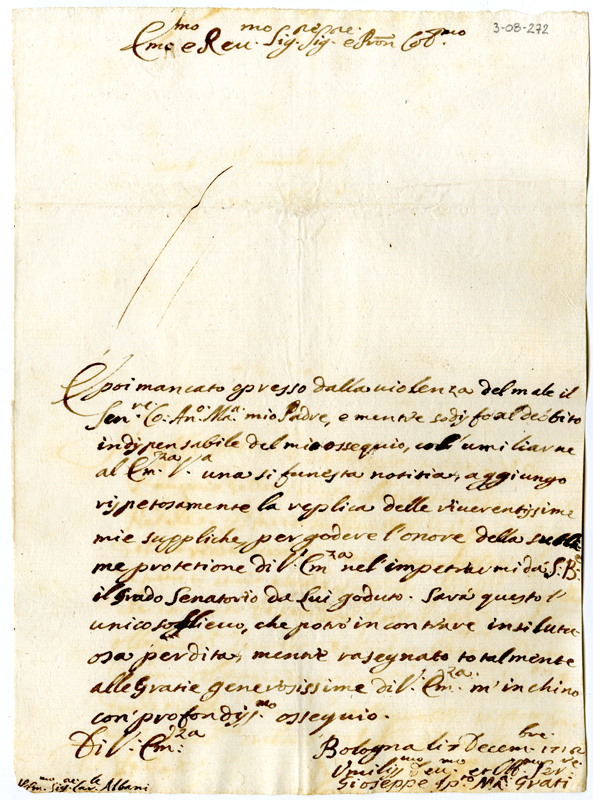 3-08-272
Em.mo e Rev.mo Sig.re Sig.re e Pron Col.mo
È poi mancato oppresso dalla violenza del male il
Sen.re Co. An.o Ma.a mio Padre, e mentre sodisfo al debito
indispensabile del mio ossequio, coll'umiliarne
al Em.za V.a una si funesta notitia, aggiungo
rispetosamente la replica delle riverentissime
mie suppliche, per godere l'onore della subli-
me protetione di V. Em.za nel'impetrarmi da S. B.e
il Grado Senatorio da Lui goduto. Sarà questo l'
unico soglievo, che potrò incontrare in si lutu-
osa perdita, mentre rasegnato totalmente
alle Gratie generosissime di V. Em.za m'inchino
con profondiss.mo ossequio.
Di V. Em.za
Bologna li Decem.bre 1712
Umiliss.mo Dev.mo et Obb.mo Ser.re
Em.mo Sig. Car.le Albani
Giuseppe Sp.to Ma.a Grati